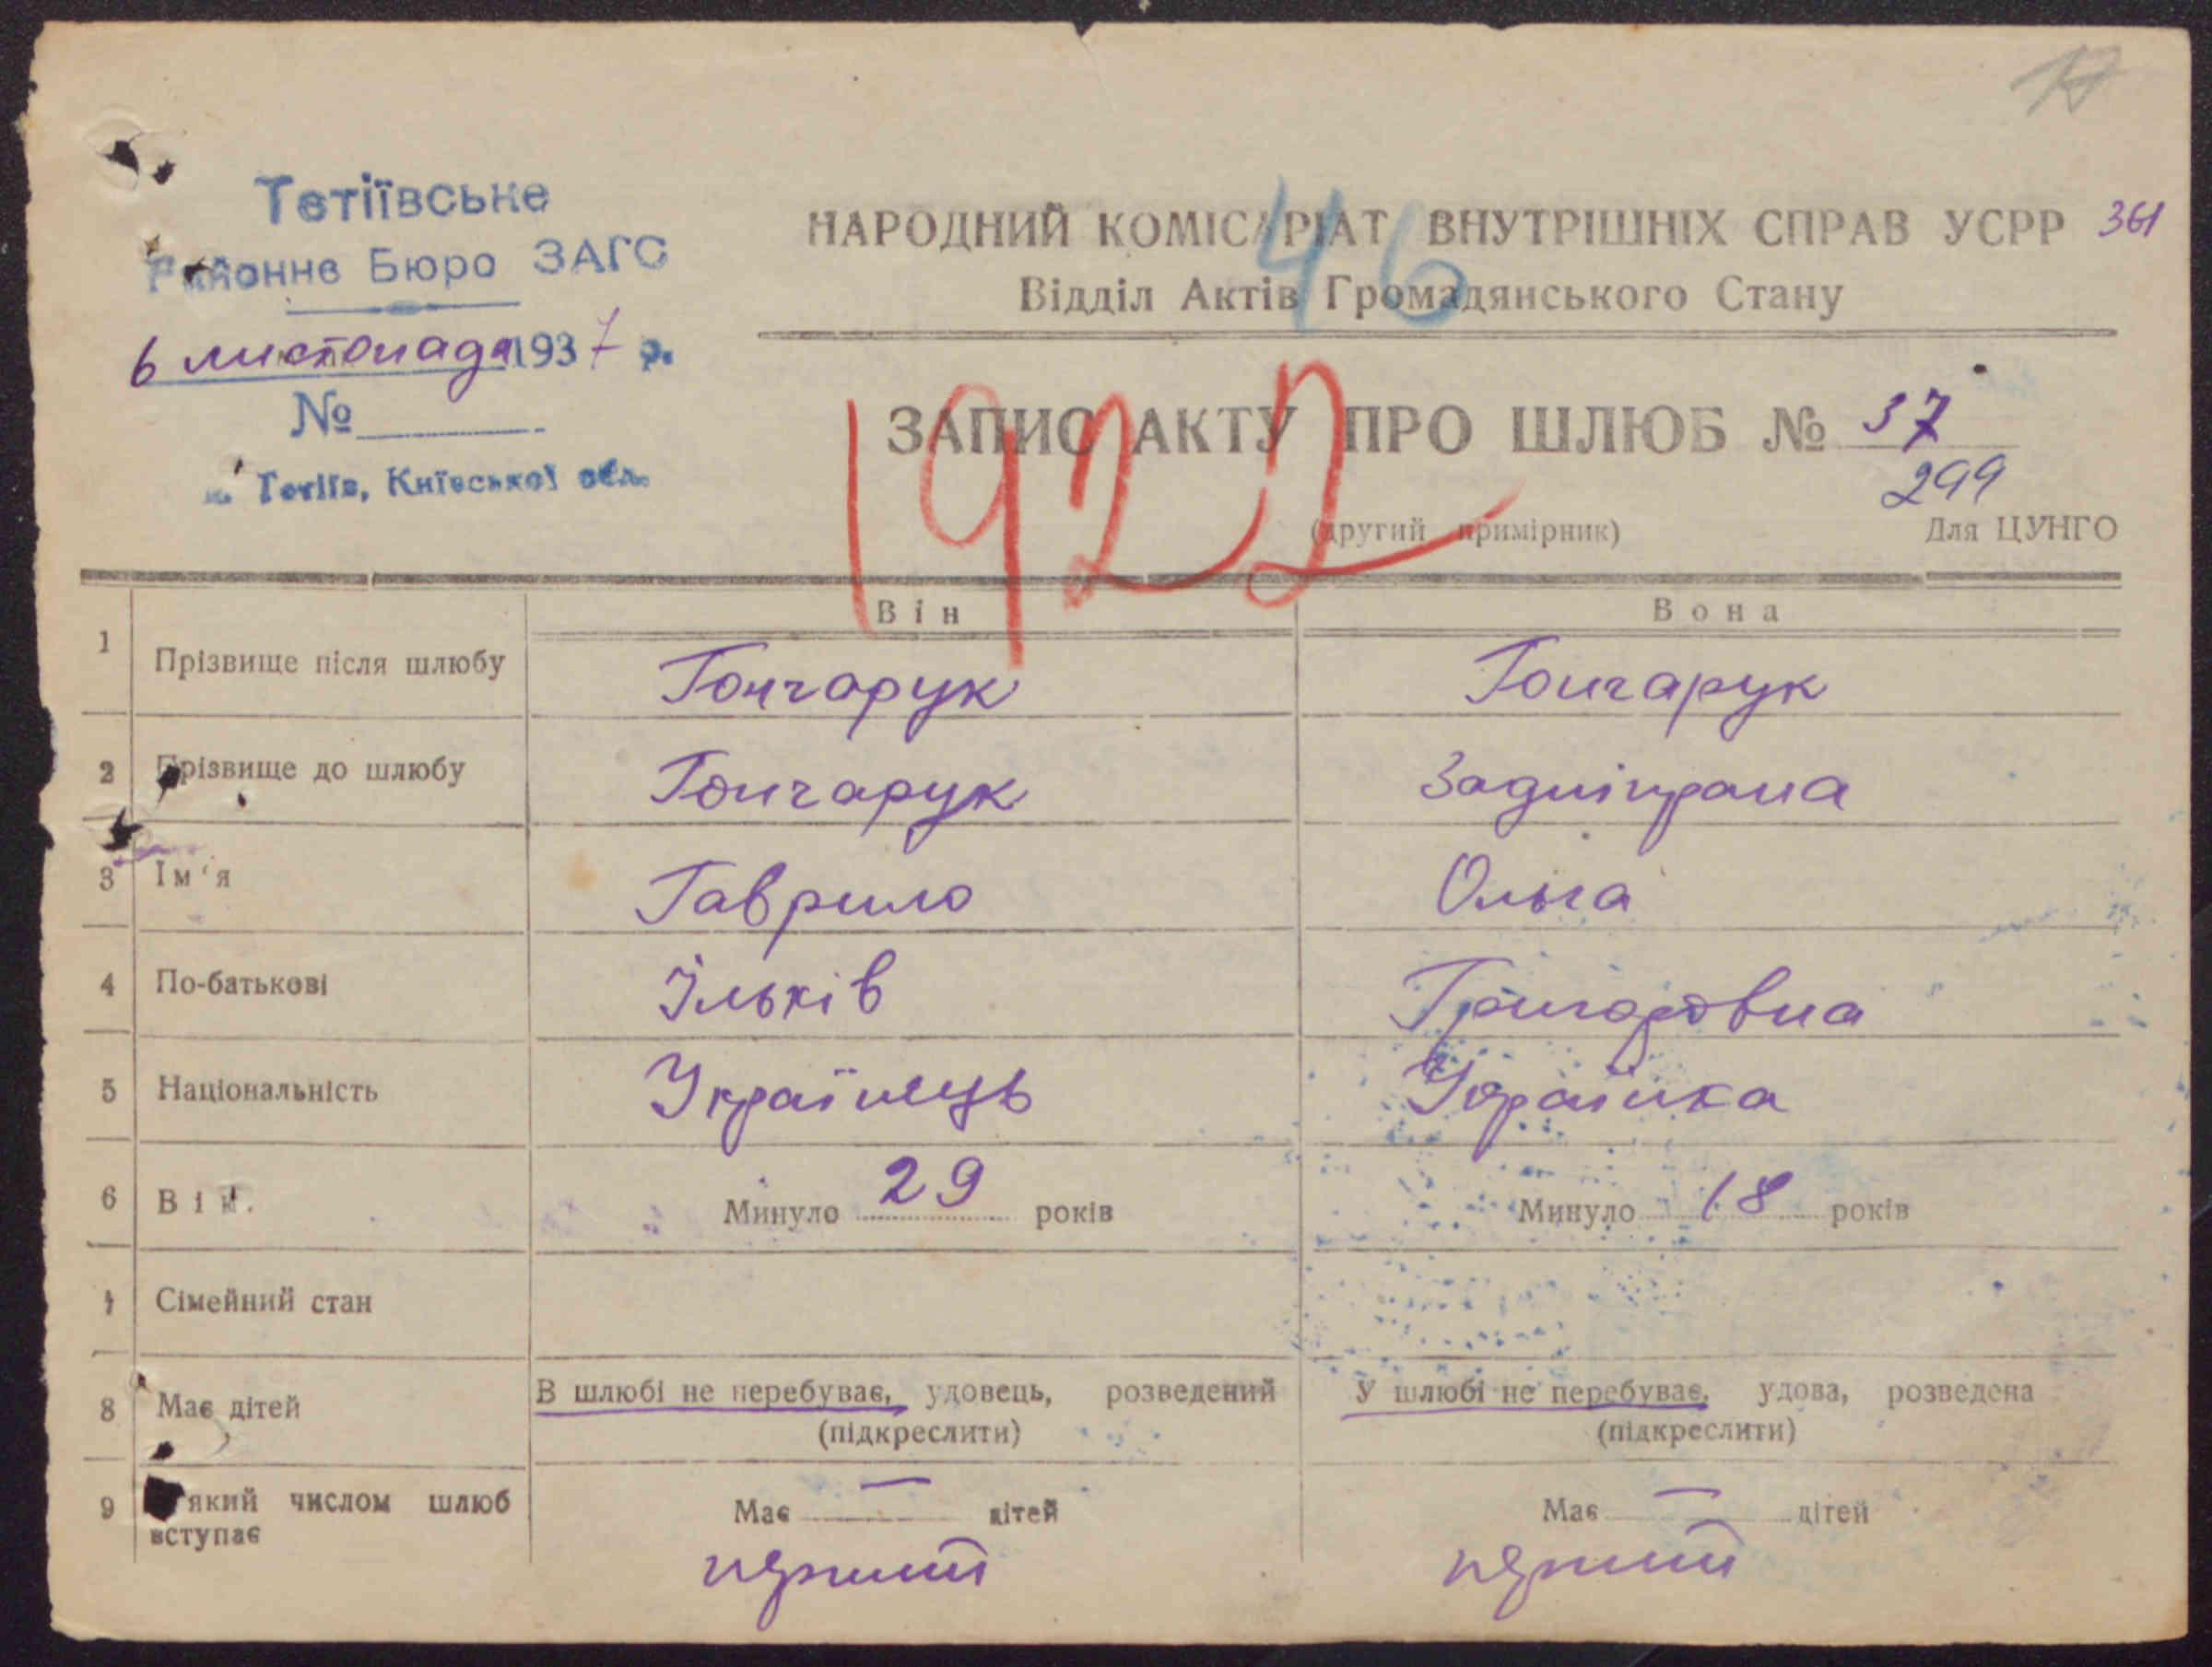 17
Тетіївське
Районне Бюро ЗАГС
6 листопада 1937 р.
№
м. Тетіїв, Київської обл.
НАРОДНИЙ КОМІСАРІАТ ВНУТРІШНІХ СПРАВ УСРР 361
Відділ Актів Громадянського Стану
46
ЗАПИС АКТУ ПРО ШЛЮБ № 37
299
1922
(другий примірник) Для ЦУНГО
Він Вона
1 Прізвище після шлюбу Гончарук Гончарук
2 Прізвище до шлюбу Гончарук
3 Ім'я Гаврило Ольга
4 По-батькові Ільків Григоровна
5 Національність Українець Українка
6 Вік. Минуло 29 років Минуло 18 років
7 Сімейний стан
8 Має дітей В шлюбі не перебуває, удовець, розведений У шлюбі не перебуває, удова, розведена
(підкреслити) (підкреслити)
9 який числом шлюб Має — дітей Має — дітей
вступає
перший перший